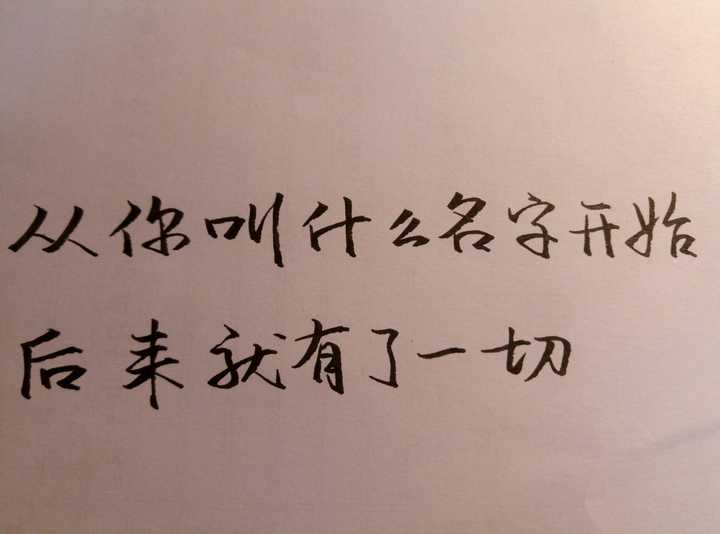 从你叫什么名字开始
后来就有了一切